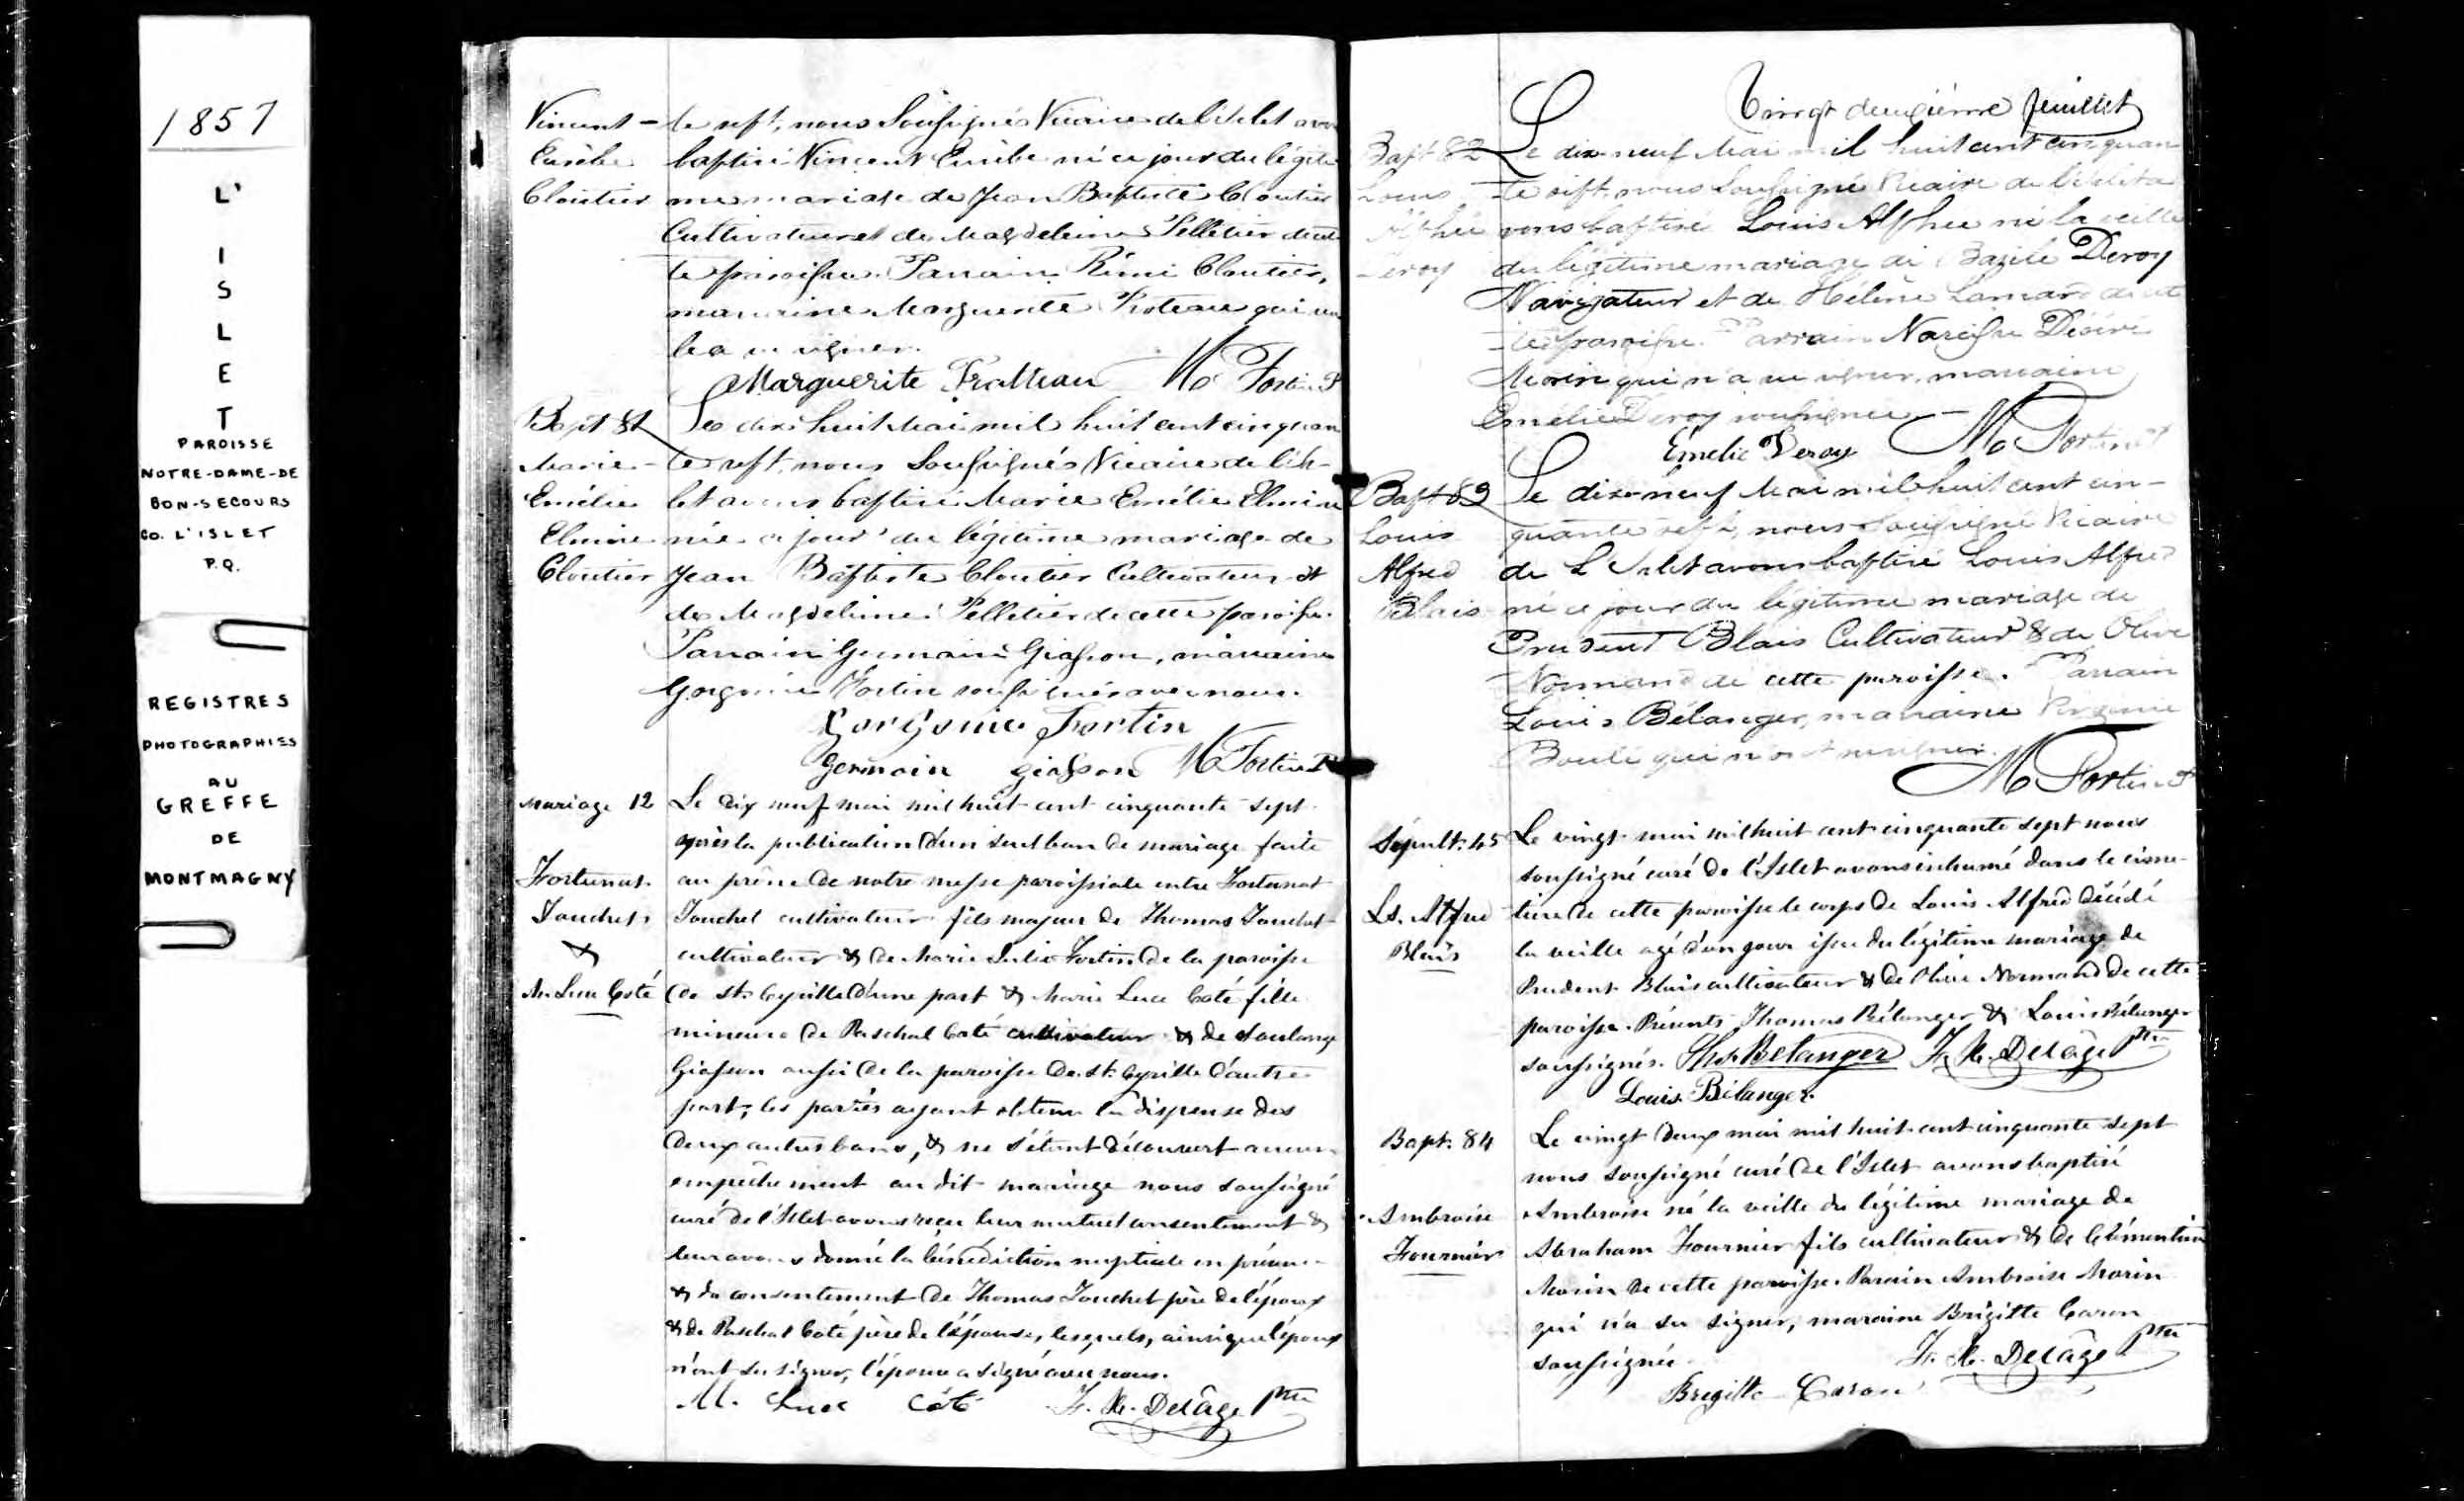 1857
L'
I
S
L
E
T
PAROISSE
NOTRE-DAME-DE
BON-SECOURS
CO. L'ISLET
P.Q.
REGISTRES
PHOTOGRAPHIES
AU
GREFFE
DE
MONTMAGNY
Vincent
Eusèbe
Cloutier
te sept, nous Soussignés Vicaire de l'Islet avons
baptisé Vincent Eusèbe né ce jour du légiti
me mariage de Jean Baptiste Cloutier
Cultivateur et de Magdeleine Pelletier de cet
te paroisse. Parrain Rémi Cloutier,
marraine Marguerite
signer.
Marguerite Fratteau M Fortin P
Bapt 81
Marie
Emélie
Elmire
Cloutier
Le dix huit Mai mil huit cent cinquan
te sept, nous Soussignés Vicaire de l'Is-
let avons baptisé Marie Emélie Elmire
née ce jour du légitime mariage de
Jean Baptiste Cloutier Cultivateur et
de Magdeleine Pelletier de cette paroisse.
Parrain Germain Giasson, marraine
Gorgonie Fortin soussignés avec nous.
Gorgonie Fortin
Germain giasson M Fortin P
Mariage 12
Fortunat
Touchet
&
M. Luce Coté
Le dix neuf mai mil huit cent cinquante sept
après la publication d'un seul ban de mariage faite
au prône de notre messe paroissiale entre Fortunat
Touchet cultivateur fils majeur de Thomas Touchet
cultivateur & de Marie Julie Fortin de la paroisse
de St. Cyrille d'une part & Marie Luce Coté fille
mineure de Paschal Coté cultivateur & de Soulange
Giasson aussi de la paroisse de St. Cyrille d'autre
part; les parties ayant obtenu la dispense des
deux autres bans, & ne s'étant découvert aucun
empêchement au dit mariage nous soussigné
curé de l'Islet avons reçu leur mutuel consentement &
leur avons donné la bénédiction nuptiale en présence
& du consentement de Thomas Touchet père de l'époux
& de Paschal Coté père de l'épouse, lesquels, ainsi que l'époux
n'ont su signer, l'épouse a signé avec nous.
M. Luce Coté F. X. Delâge Ptre
Vingt deuxième feuillet
Bapt 82
Louis
Alphée
Deroy
Le dix-neuf Mai mil huit cent cinquan
te sept, nous Soussigné Vicaire de l'Islet a
vons baptisé Louis Alphée né la veille
du légitime mariage de Bazile Deroy
Navigateur et de Hélène Lamarre de cet
te paroisse. Parrain Narcisse Désiré
Morin qui n'a su signer, marraine
Emélie Deroy soussignée
Émelie Deroy M Fortin P
Bapt 83
Louis
Alfred
Blais
Le dix-neuf Mai mil huit cent cin-
quante sept, nous Soussigné Vicaire
de L'Islet avons baptisé Louis Alfred
né ce jour du légitime mariage de
Prudent Blais Cultivateur & de Olive
Normand de cette paroisse. Parrain
Louis Bélanger, marraine Virginie
Boulé qui n'ont su signer.
M Fortin P
Sépult. 45
Ls. Alfred
Blais
Le vingt mai mil huit cent cinquante sept nous
soussigné curé de l'Islet avons inhumé dans le cime-
tière de cette paroisse le corps de Louis Alfred décédé
la veille agé d'un jour issu du légitime mariage de
Prudent Blais cultivateur & de Olive Normand de cette
paroisse. Présents Thomas Bélanger & Louis Bélanger
soussignés. Ths. Belanger F. X. Delâge Ptre
Louis Bélanger
Bapt. 84
Ambroise
Fournier
Le vingt deux mai mil huit cent cinquante sept
nous soussigné curé de l'Islet avons baptisé
Ambroise né la veille du légitime mariage de
Abraham Fournier fils cultivateur & de Clémentine
Morin de cette paroisse. Parain Ambroise Morin
qui n'a su signer, maraine Brigitte Caron
soussignée. F. X. Delâge Ptre
Bregitte Caron